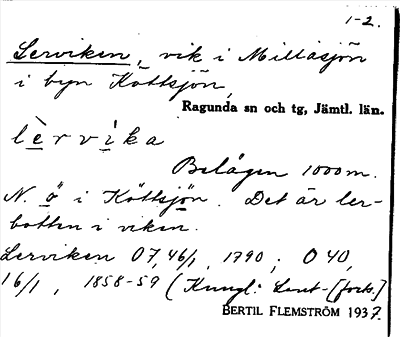 1-2.
Lerviken, vik i Millåsjön
i byn Köttsjön,
Ragunda sn och tg, Jämtl. län.
lèrvika
Belägen 1000 m.
N. ö i Köttsjön. Det är ler-
botten i viken.
Lerviken O 7, 46/1, 1790; O 40,
16/1, 1858-59 (Kungl: Lant-[forts.]
BERTIL FLEMSTRÖM 1937.